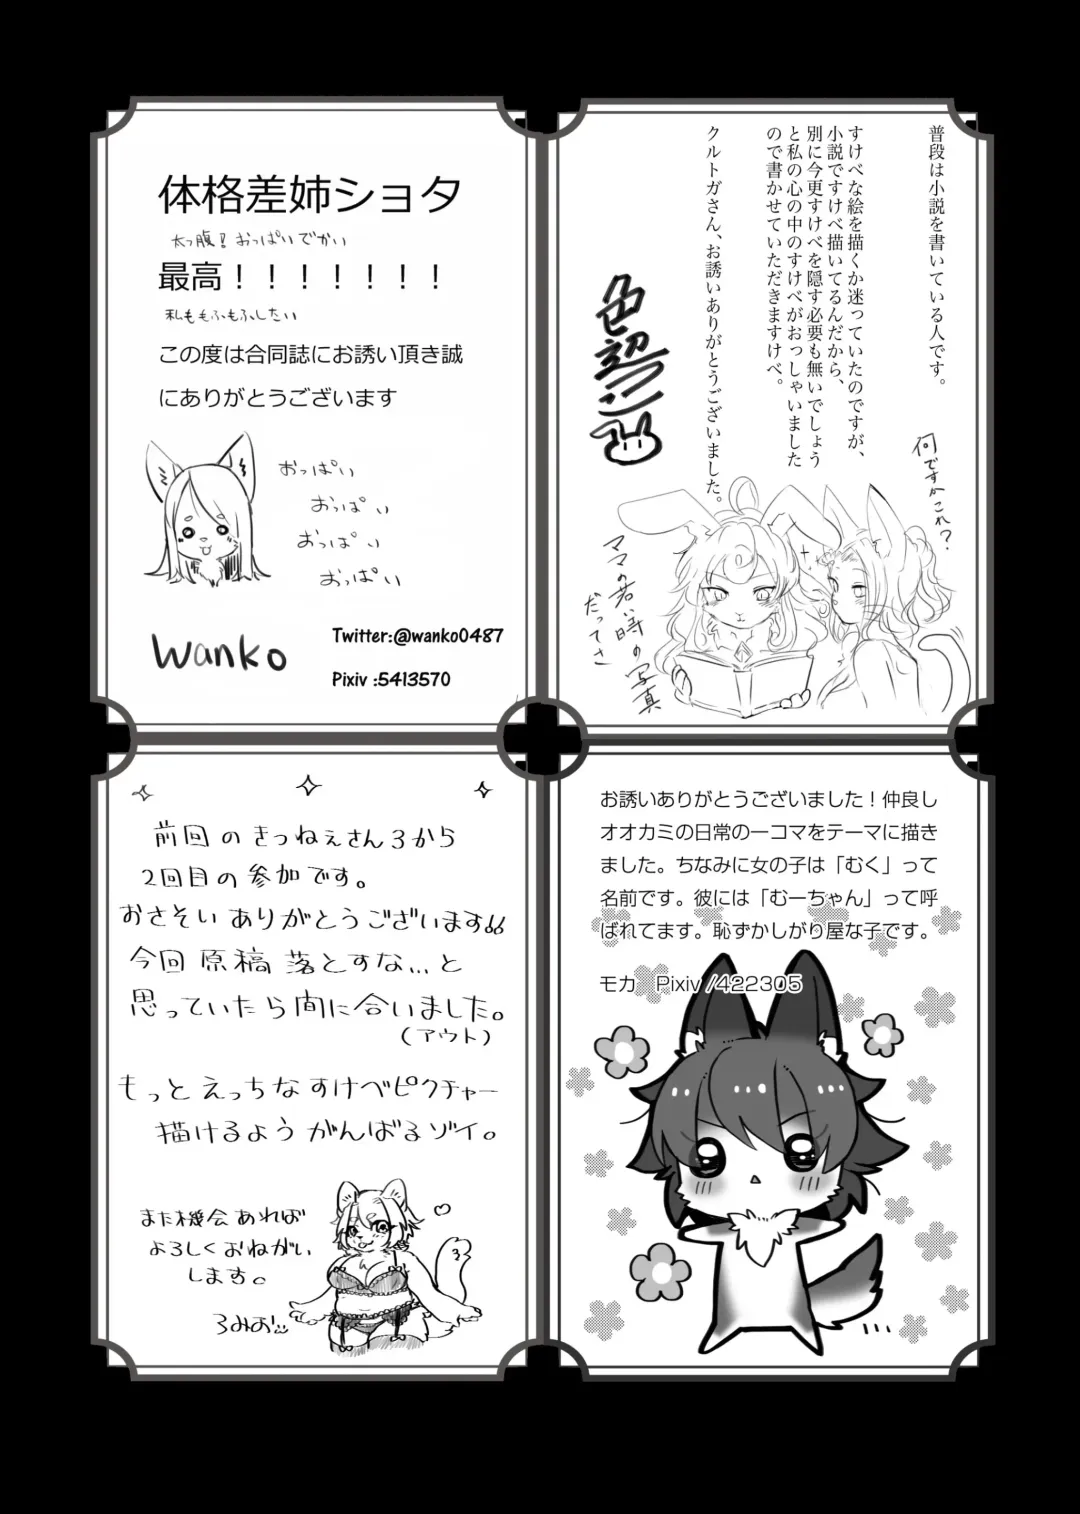 体格差姉ショタ
太っ腹!おっぱいでかい
最高!!!!!!!
私ももふもふしたい
この度は合同誌にお誘い頂き誠
にありがとうございます
おっぱい
おっぱい
おっぱい
おっぱい
wanko
Twitter:@wanko0487
Pixiv :5413570
普段は小説を書いている人です。
すけべな絵を描くか迷っていたのですが、
小説ですけべ描いてるんだから、
別に今更すけべを隠す必要も無いでしょう
と私の心の中のすけべがおっしゃいました
ので書かせていただきますすけべ。
クルトガさん、お誘いありがとうございました。
何ですかこれ?
ママの若い時の写真
だってさ
前回のきつねぇさん3から
2回目の参加です。
おさそいありがとうございます!!
今回原稿落とすな...と
思っていたら間に合いました。
(アウト)
もっとえっちなすけべピクチャー
描けるようがんばるゾイ。
また機会あれば
よろしくおねがい
します。
ろみお
お誘いありがとうございました!仲良し
オオカミの日常の一コマをテーマに描き
ました。ちなみに女の子は「むく」って
名前です。彼には「むーちゃん」って呼
ばれてます。恥ずかしがり屋な子です。
モカ Pixiv /422305